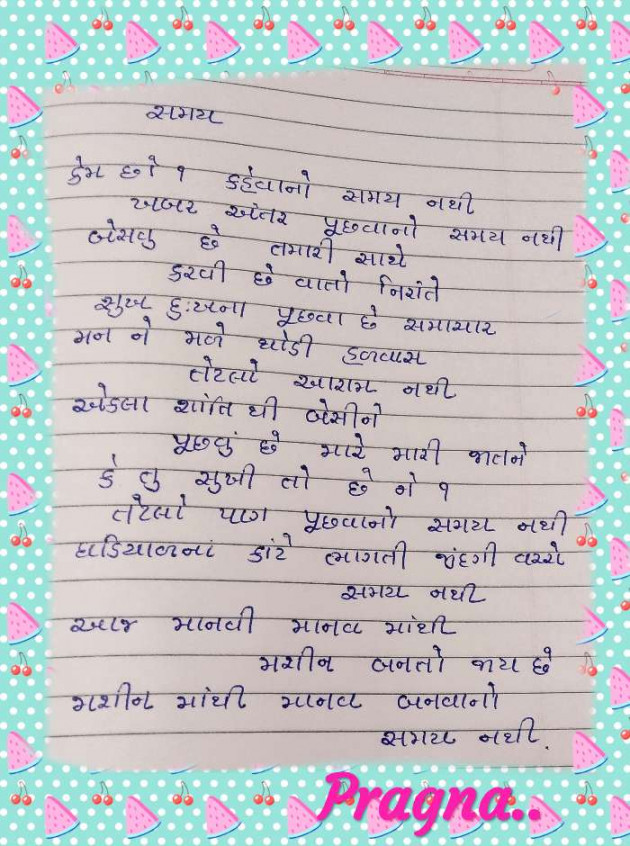 સમય
કેમ છો ? કહેવાનો સમય નથી
ખબર અંતર પૂછવાનો સમય નથી
બેસવુ છે તમારી સાથે
કરવી છે વાતો નિરાંતે
સુખ દુઃખના પૂછવા છે સમાચાર
મન ને મળે થોડી હળવાસ
તેટલો આરામ નથી
એકલા શાંતિ થી બેસીને
પૂછવું છે મારે મારી જાતને
કે તુ સુખી તો છે ને ?
તેટલો પણ પૂછવાનો સમય નથી
ઘડિયાળનાં કાંટે ભાગતી જીંદગી વચ્ચે
સમય નથી
આજ માનવી માનવ માંથી
મશીન બનતો જાય છે
મશીન માંથી માનવ બનવાનો
સમય નથી.
Pragna..